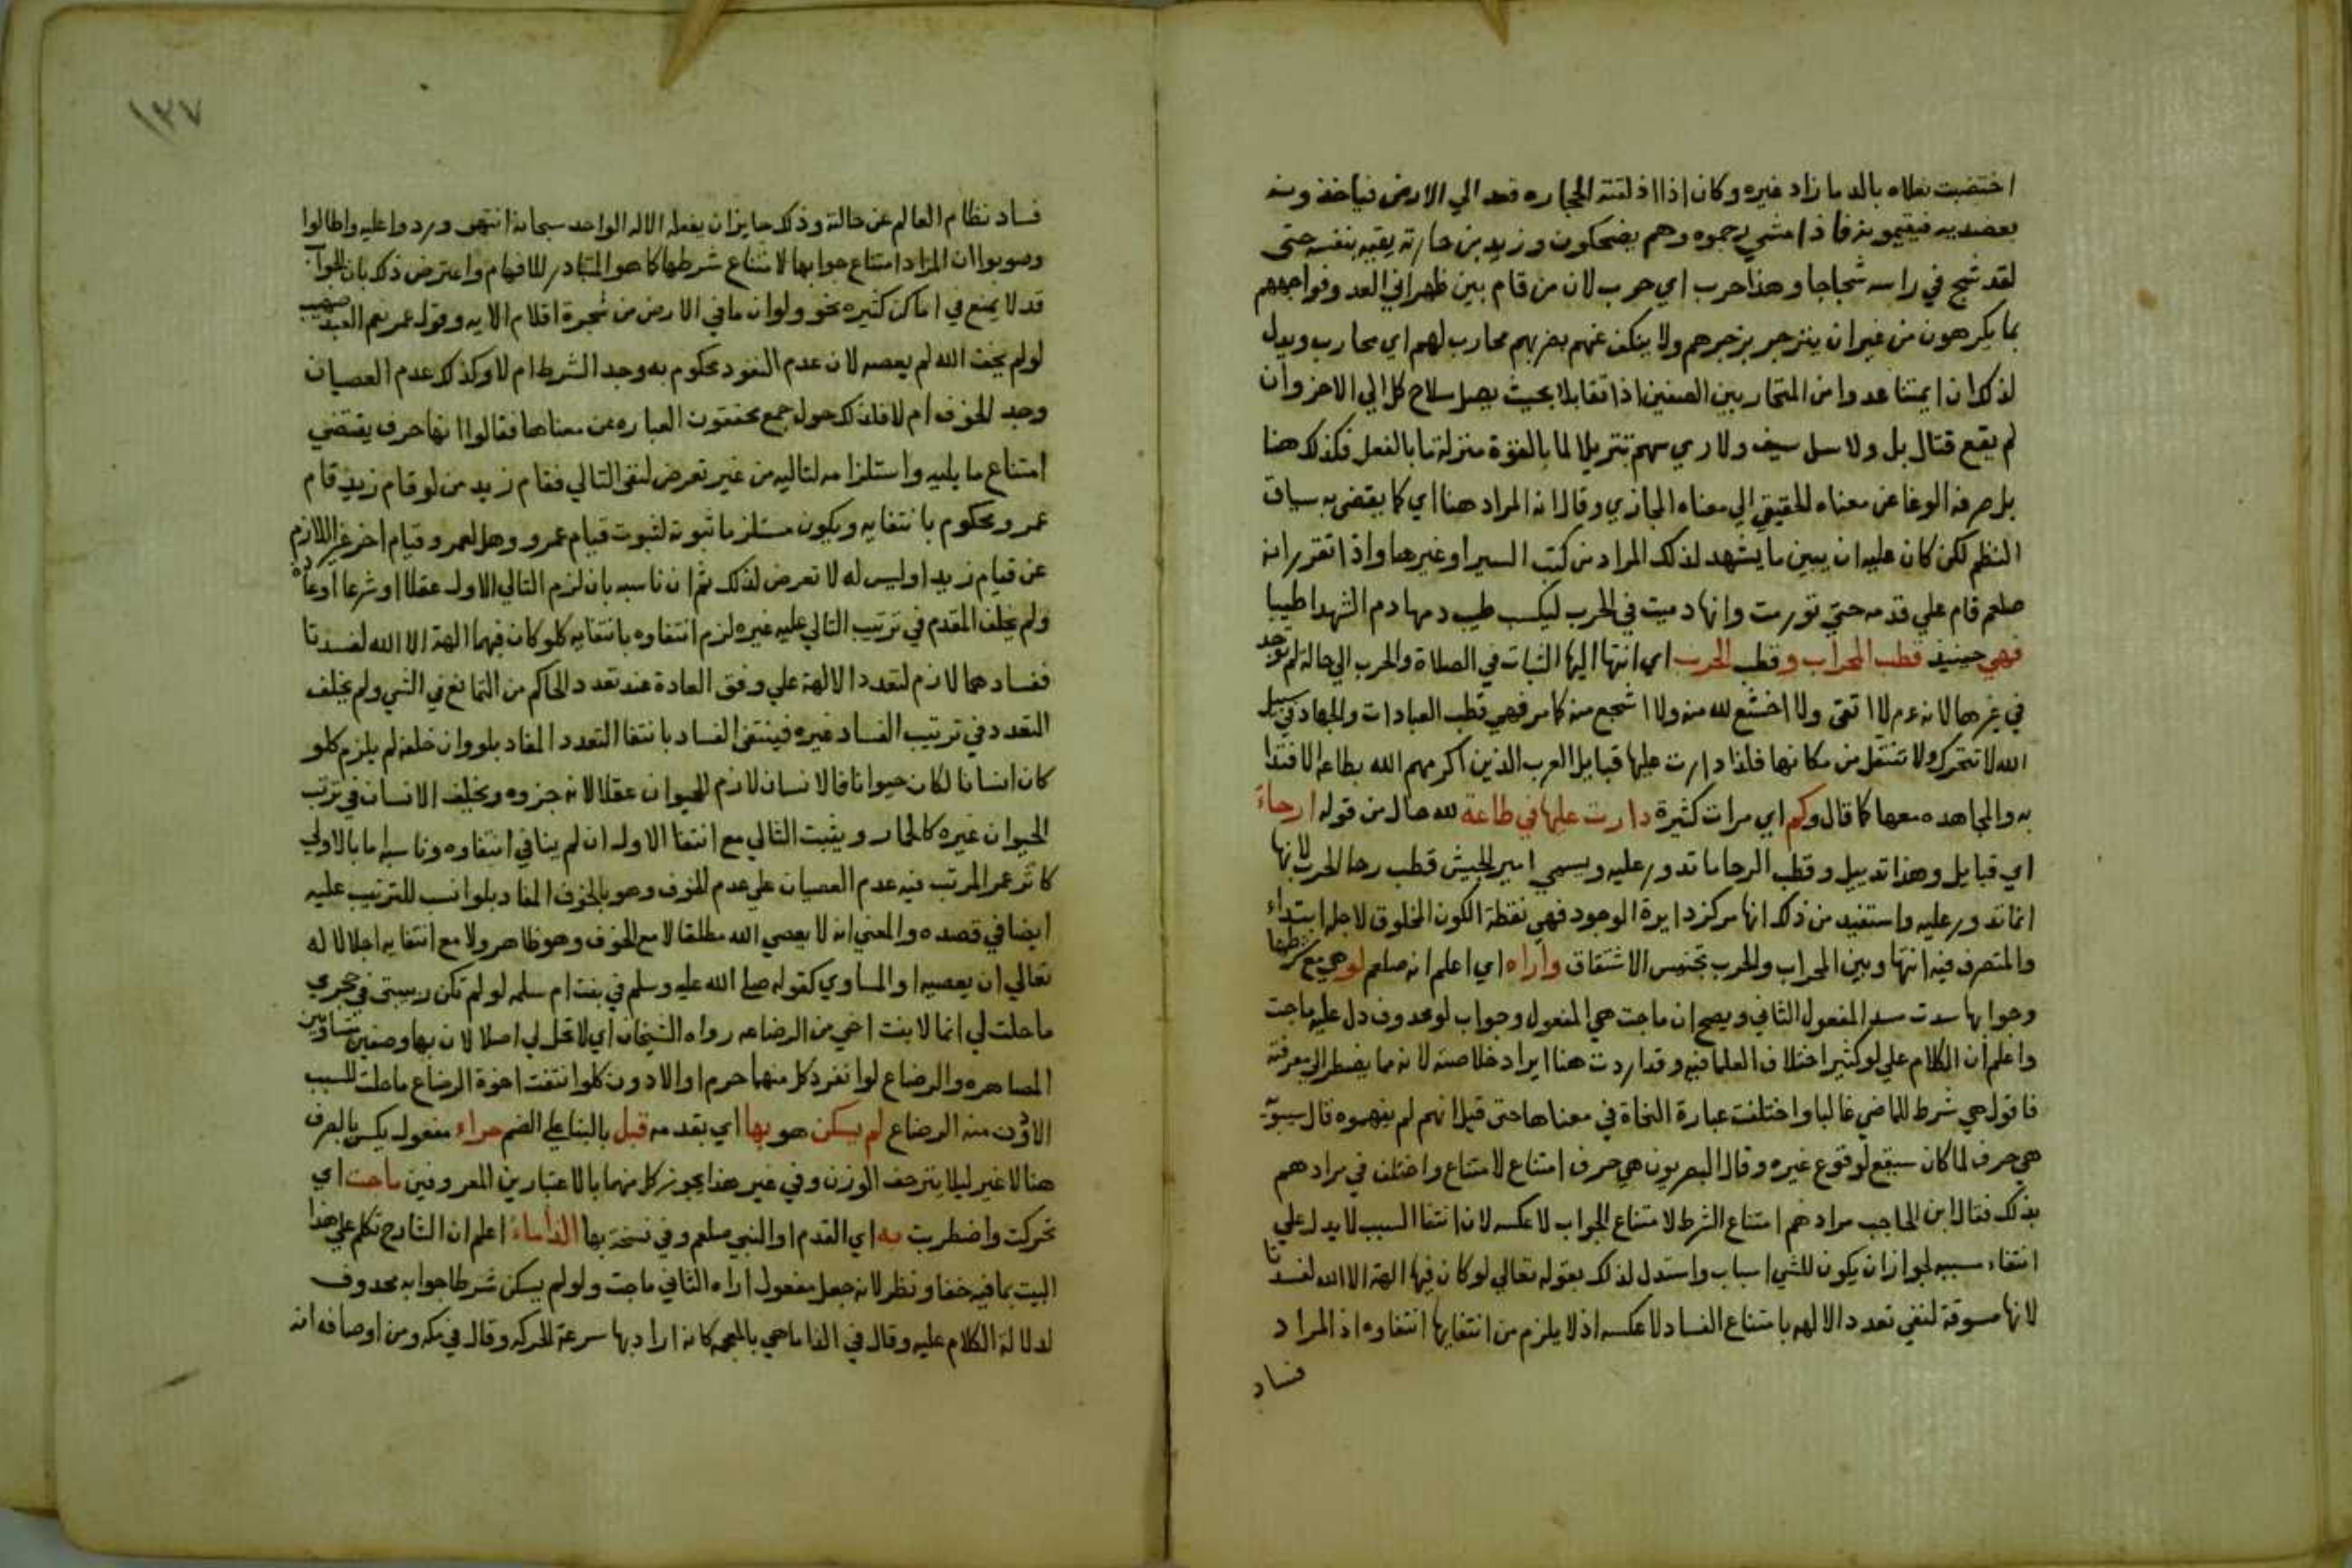 اختضبت نعلاه بالدما زاد غيره وكان اذا اذلقته الحجاره قعد الي الارض فياخذونه
بعضديه فيقيمونه فاذا مشي رجموه وهم يضحكون وزيد بن حارثه يقيه بنفسه حتى
لقد شج في راسه شجاجا وهذا حرب اي حرب لان من قام بين ظهراني العدو وفواجههم
بما يكرهون من غير ان ينزجر بزجرهم ولا ينكف عنهم بضربهم محارب لهم اي محارب ويدل
لذلك ان ايمتنا عدوا من المتحاربين الصفين اذا تقابلا بحيث يصل سلاح كل الي الاخر وان
لم يقع قتال بل ولا سل سيف ولا رمي سهم تنزيلا لما بالقوة منزلة ما بالفعل فكذلك هنا
بل صرفه الوغا عن معناه الحقيقي الي معناه المجازي وقال انه المراد هنا اي كما يقضي به سياق
النظم لكن كان عليه ان يبين ما يشهد لذلك المراد من كتب السير او غيرها واذا تقرر انه
صلعم قام علي قدمه حتي تورمت وانها دميت في الحرب ليكسب طيب دمها دم الشهدا طيبا
فهي حينيذ قطب المحراب وقطب الحرب اي انتها اليها الثبات في الصلاة والحرب الي حالة لم توجد
في غيرها لانه عم لا اتقي ولا اخشع لله منه ولا اشجع منه كما مر فهي قطب العبادات والجهاد في سبيل
الله لا تتحرك ولا تنتقل من مكانها فلذا دارت عليها قبايل العرب الذين اكرمهم الله بطاعة الاقتدا
به والمجاهده معها كما قال وكم اي مرات كثيرة دارت عليها في طاعة لله حال من قوله ارحاء
اي قبايل وهذا تدييل وقطب الرحا ما تدور عليه ويسمي امير الجيش قطب رحا الحرب لانها
انما تدور عليه واستفيد من ذلك انها مركز دايرة الوجود فهي نقطة الكون المخلوق لاجلها ابتداء
والمتصرف فيه انتها وبين المحراب والحرب تجنيس الاشتقاق واراه اي اعلم انه صلعم لو هي مع شرطها
وجوابها سدت مسد المفعول الثاني ويصح ان ماجت هي المفعول وجواب لو محدوف دل عليه ماجت
واعلم ان الكلام علي لو كثير اختلاف العلما فيه وقد اردت هنا ايراد خلاصته لانه مما يضطر الي معرفته
فاقول هي شرط للماضي غالبا واختلفت عبارة النحاة في معناها حتى قيل انهم لم يفهموه قال سيبويه
هي حرف لما كان سيقع لوقوع غيره وقال البصريون هي حرف امتناع لامتناع واختلف في مرادهم
بذلك فقال ابن الحاجب مرادهم امتناع الشرط لامتناع الجواب لا عكسه لان انتفا السبب لا يدل علي
انتفاء مسببه لجواز ان يكون للشي اسباب واستدل لذلك بقوله تعالي لو كان فيها الهة الا الله لفسدتا
لانها مسوقة لنفي تعدد الالهه بامتناع الفساد لا عكسه اذ لا يلزم من انتفايها انتفاوه اذ المراد
فساد
١٣٧
فساد نظام العالم عن حالته وذلك جايز ان يفعله الاله الواحد سبحانه انتهى وردوا عليه واطالوا
وصوبوا ان المراد امتناع جوابها لامتناع شرطها كما هو المتبادر للافهام واعترض ذلك بان الجواب
قد لا يمنع في اماكن كثيره نحو ولو ان ما في الارض من شجرة اقلام الايه وقول عمر نعم العبد صهيب
لو لم يخف الله لم يعصه لان عدم النفود محكوم به وجد الشرط ام لا وكذلك عدم العصيان
وجد الخوف ام لا فلذلك حول جمع محققون العباره عن معناها فقالوا انها حرف يقتضي
امتناع ما يليه واستلزامه لتاليه من غير تعرض لنفي التالي فقام زيد من لو قام زيد قام
عمرو محكوم بانتفايه ويكون مستلزما ثبوته لثبوت قيام عمرو وهل لعمرو قيام اخر غير اللازم
عن قيام زيد او ليس له لا تعرض لذلك ثم ان ناسبه بان لزم التالي الاول عقلا او شرعا او عادة
ولم يخلف المقدم في ترتيب التالي عليه غيره لزم انتفاوه بانتفايه كلو كان فيهما الهة الا الله لفسدتا
ففسادهما لازم لتعدد الالهة علي وفق العادة عند تعدد الحاكم من التمانع في الشي ولم يخلف
التعدد في ترتيب الفساد غيره فينتفي الفساد بانتفا التعدد المفاد بلو وان خلفه لم يلزم كلو
كان انسانا لكان حيوانا فالانسان لازم للحيوان عقلا لانه جزوه ويخلف الانسان في ترتب
الحيوان غيره كالحمار ويثبت التالي مع انتفا الاول ان لم ينافي انتفاوه وناسبه اما بالاولي
كاثر عمر المرتب فيه عدم العصيان علي عدم الخوف وهو بالخوف المفاد بلو انسب للترتيب عليه
ايضا في قصده والمعني انه لا يعصي الله مطلقا لا مع الخوف وهو ظاهر ولا مع انتفايه اجلالا له
تعالي ان يعصيه او المساوي كقوله صلي الله عليه وسلم في بنت ام سلمه لو لم تكن ربيبتى في حجري
ما حلت لي انها لابنت اخي من الرضاعه رواه الشيخان اي لا تحل لي اصلا لان بها وصفين متساويين
المصاهره والرضاع لو انفرد كل منهما حرم او الادون كلو انتفت اخوة الرضاع ما حلت للنسب
الادون منه الرضاع لم يسكن هو بها اي بقدمه قبل بالبنا علي الضم حراء مفعول يسكن بالصرف
هنا لا غير ليلا يتزحف الوزن وفي غير هذا يجوز كل منهما بالاعتبارين المعروفين ماجت اي
تحركت واضطربت به اي القدم او النبي صلعم وفي نسخة بها الداماء اعلم ان الشارح تكلم علي هذا
البيت بما فيه خفا ونظر لانه جعل مفعول اراه الثاني ماجت ولو لم يسكن شرطا جوابه محدوف
لدلالة الكلام عليه وقال في الداما هي بالمعجمه كانه اراد بها سرعة الحركه وقال في مكه ومن اوصافه انه